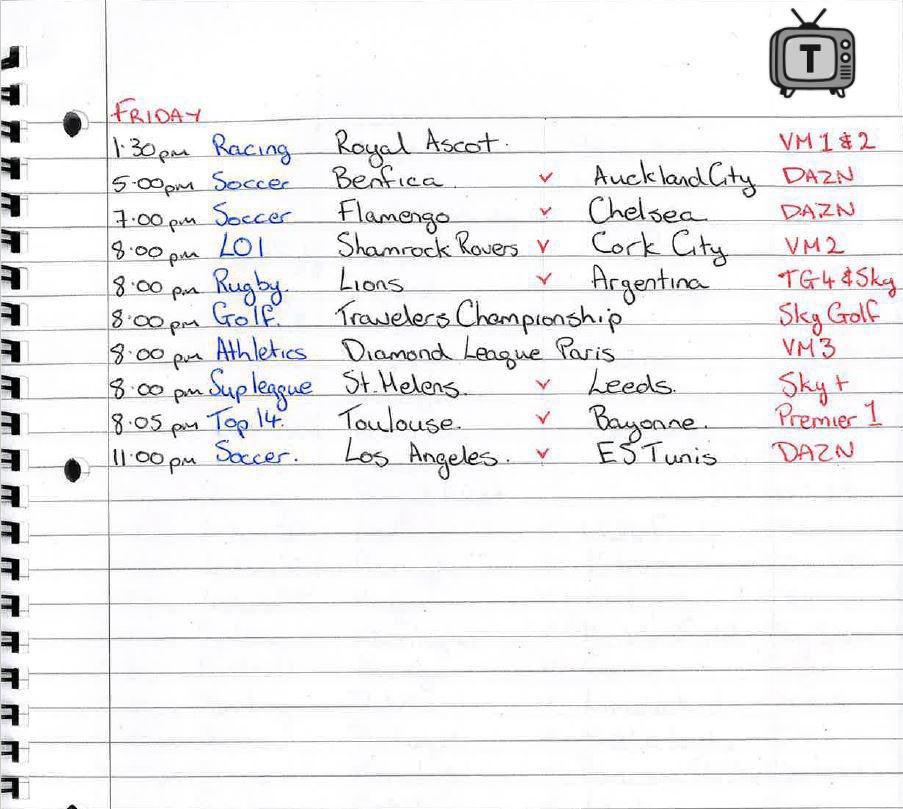 T
FRIDAY
1:30pm Racing Royal Ascot. VM 1 & 2
5:00pm Soccer Benfica v Auckland City DAZN
7:00 pm Soccer Flamengo v Chelsea DAZN
8:00 pm LOI Shamrock Rovers v Cork City VM2
8:00 pm Rugby. Lions v Argentina TG4 & Sky
8:00pm Golf. Travelers Championship Sky Golf
8:00 pm Athletics Diamond League Paris VM3
8:00 pm Sup league St. Helens. v Leeds. Sky +
8:05 pm Top 14. Toulouse. v Bayonne. Premier 1
11:00pm Soccer. Los Angeles. v ES Tunis DAZN